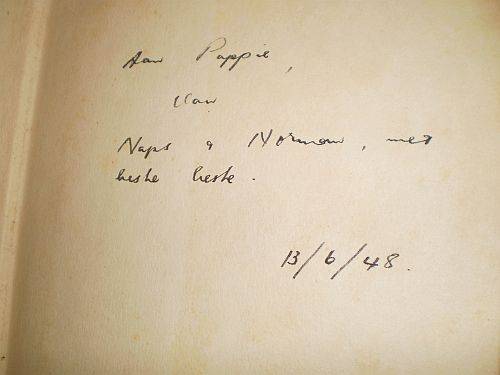 Aan Pappie,
Van
Naps & Norman, met
beste beste.
13/6/48.